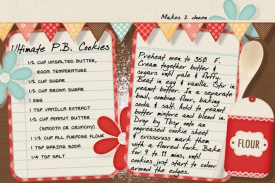 Makes 2 dozen
Ultimate P.B. Cookies
1/2 CUP UNSALTED BUTTER,
ROOM TEMPERATURE
1/2 CUP SUGAR
1/2 CUP BROWN SUGAR
1 EGG
1 TSP VANILLA EXTRACT
1/2 CUP PEANUT BUTTER
(SMOOTH OR CRUNCHY)
1 1/2 CUP ALL PURPOSE FLOUR
1 TSP BAKING SODA
1/4 TSP SALT
Preheat oven to 350 F.
Cream together butter &
sugars until pale & fluffy.
Beat in egg & vanilla. Stir in
peanut butter. In a separate
bowl, combine flour, baking
soda & salt. Add to peanut
butter mixture and blend in.
Drop by Tbsp onto an
ungreased cookie sheet
& crisscross mark them
with a floured fork. Bake
for 9 to 11 mins, until
cookies just start to color
around the edges.
FLOUR